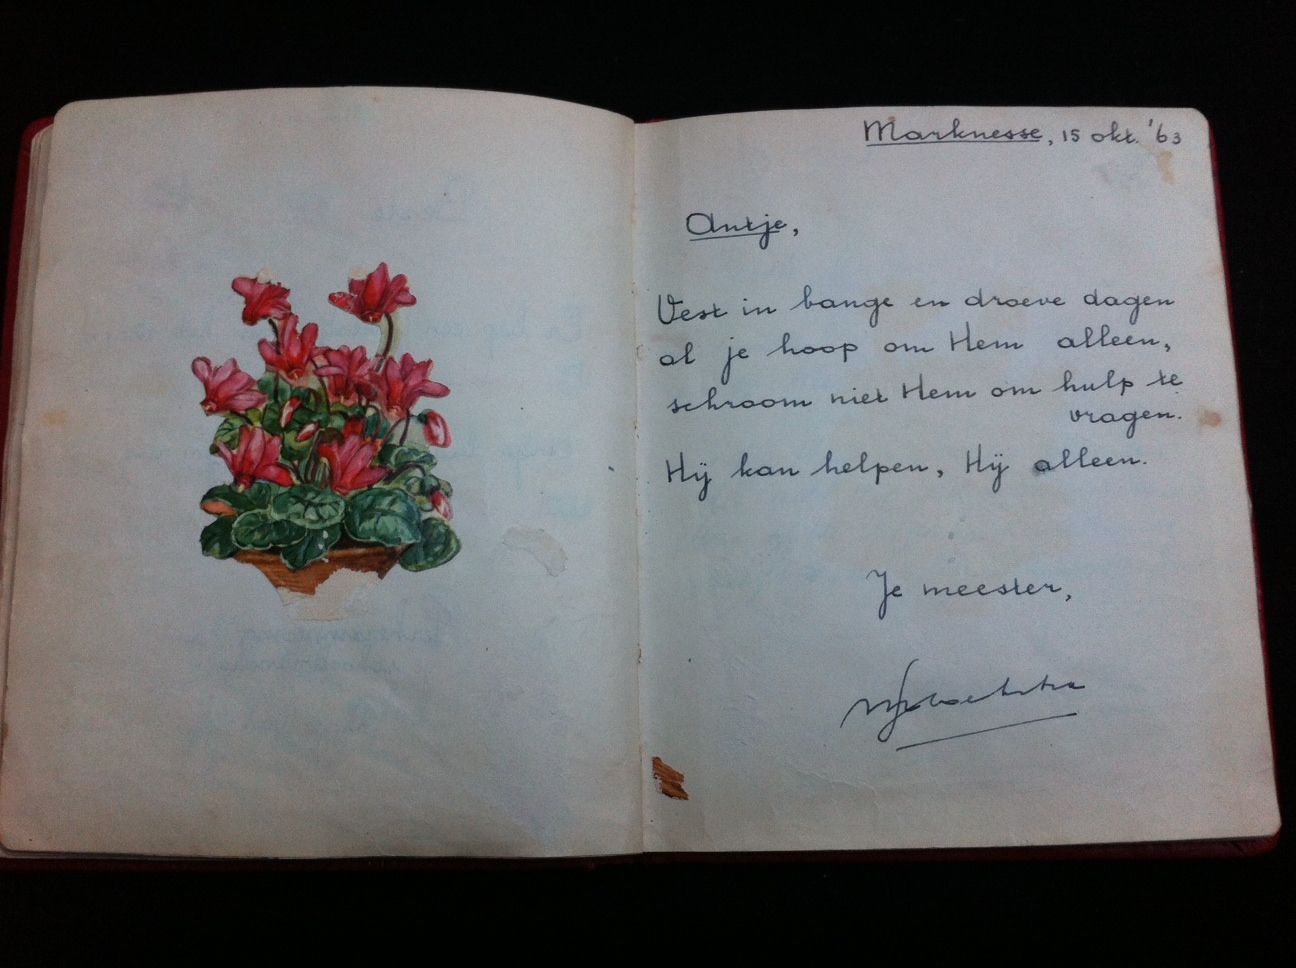 Marknesse, 15 okt. '63
Antje,
Vest in bange en droeve dagen
al je hoop om Hem alleen,
schroom niet Hem om hulp te
vragen.
Hij kan helpen, Hij alleen.
Je meester,